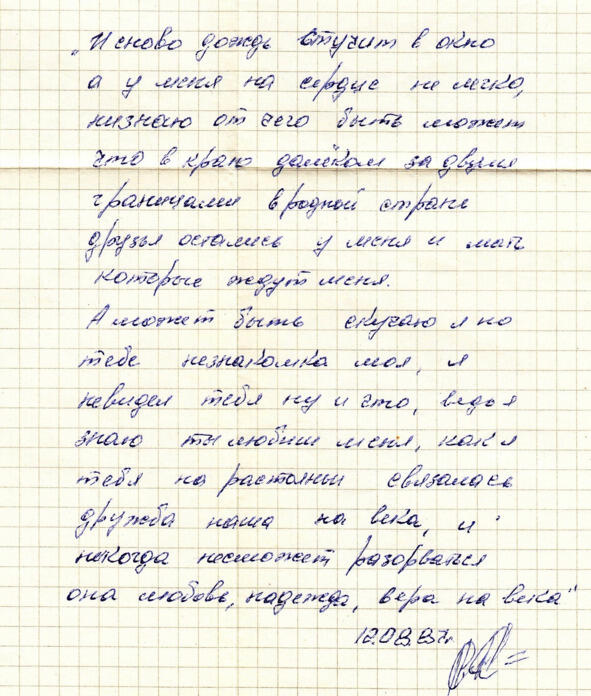 „И сново дождь стучит в окно
а у меня на сердце не легко,
низнаю от чего быть может
что в краю далёком за двумя
границами в родной стране
друзья остались у меня и мать
которые ждут меня.
А может быть скучаю я по
тебе незнакомка моя, я
невидел тебя ну и что, ведь я
знаю ты любиш меня, как я
тебя на растояньи связалась
дружба наша на века, и
некогда несможет разорваться
она любовь, надежда, вера на века"
12.08.87г